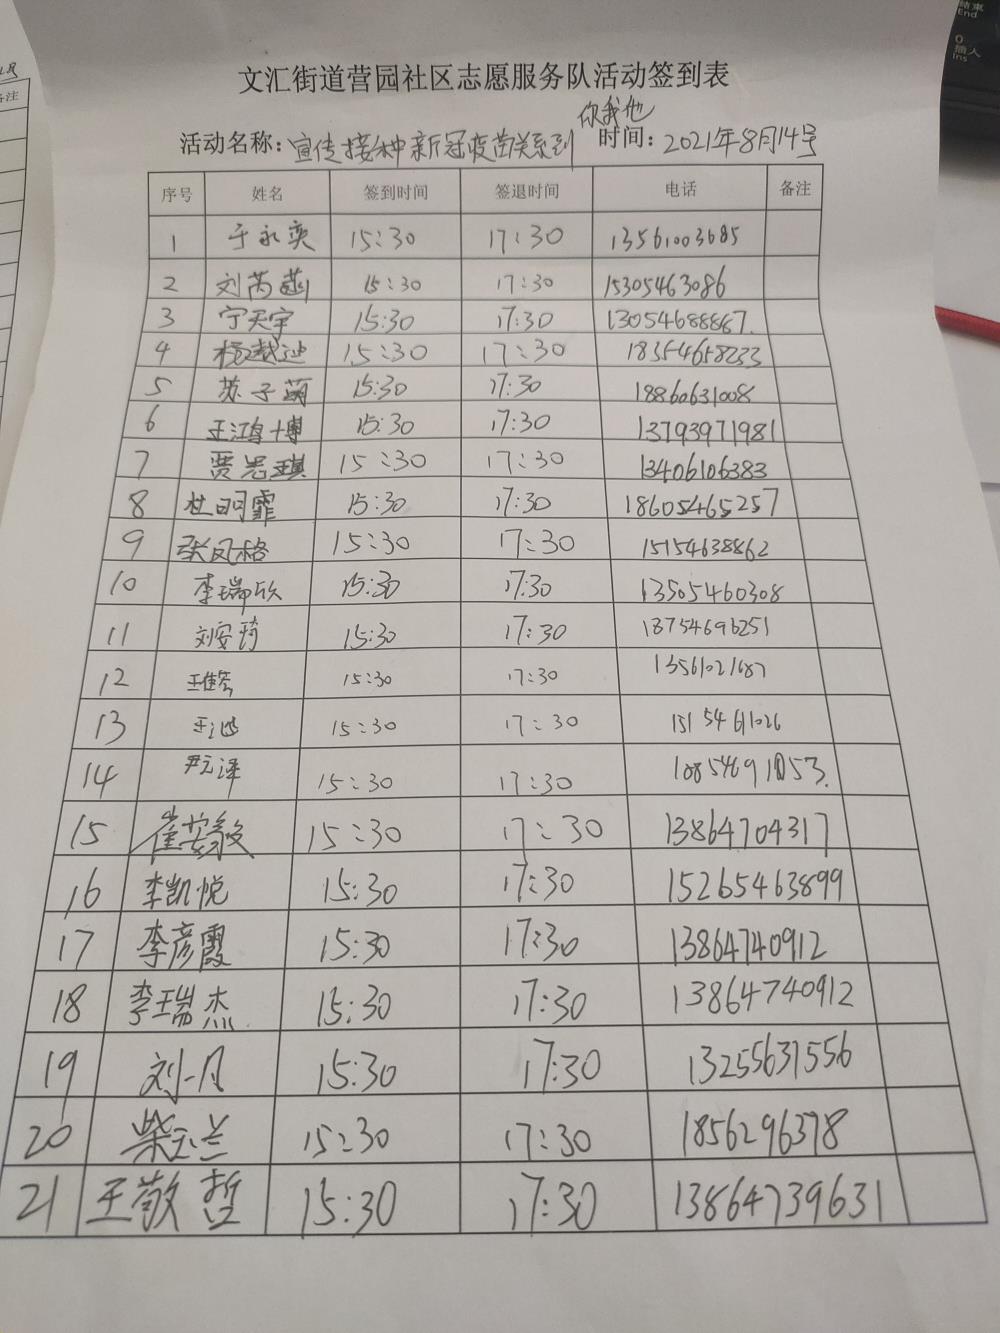 文汇街道营园社区志愿服务队活动签到表
活动名称：宣传接种新冠疫苗关系到你我他 时间：2021年8月14号
序号 姓名 签到时间 签退时间 电话 备注
1 于永奕 15:30 17:30 13561003685
2 刘芮菡 15:30 17:30 15305463086
3 宁天宇 15:30 17:30 13054688867.
4 15:30 17:30 18354658233
5 苏子萌 15:30 17:30 18860631008
6 王鸿博 15:30 17:30 13793971981
7 贾思琪 15:30 17:30 13406106383
8 杜明霏 15:30 17:30 18605465257
9 张凤格 15:30 17:30 15154638862
10 李瑞欣 15:30 17:30 13505460308
11 刘安琦 15:30 17:30 18754696251
12 15:30 17:30 13561021687
13 15:30 17:30 15154611026
14 尹元泽 15:30 17:30
15 崔安毅 15:30 17:30 13864704317
16 李凯悦 15:30 17:30 15265463899
17 李彦霞 15:30 17:30 13864740912
18 李瑞杰 15:30 17:30 13864740912
19 刘一月 15:30 17:30 13255631556
20 柴玉兰 15:30 17:30 1856296378
21 王敬哲 15:30 17:30 13864739631
备注
结束
End
0
插入
Ins